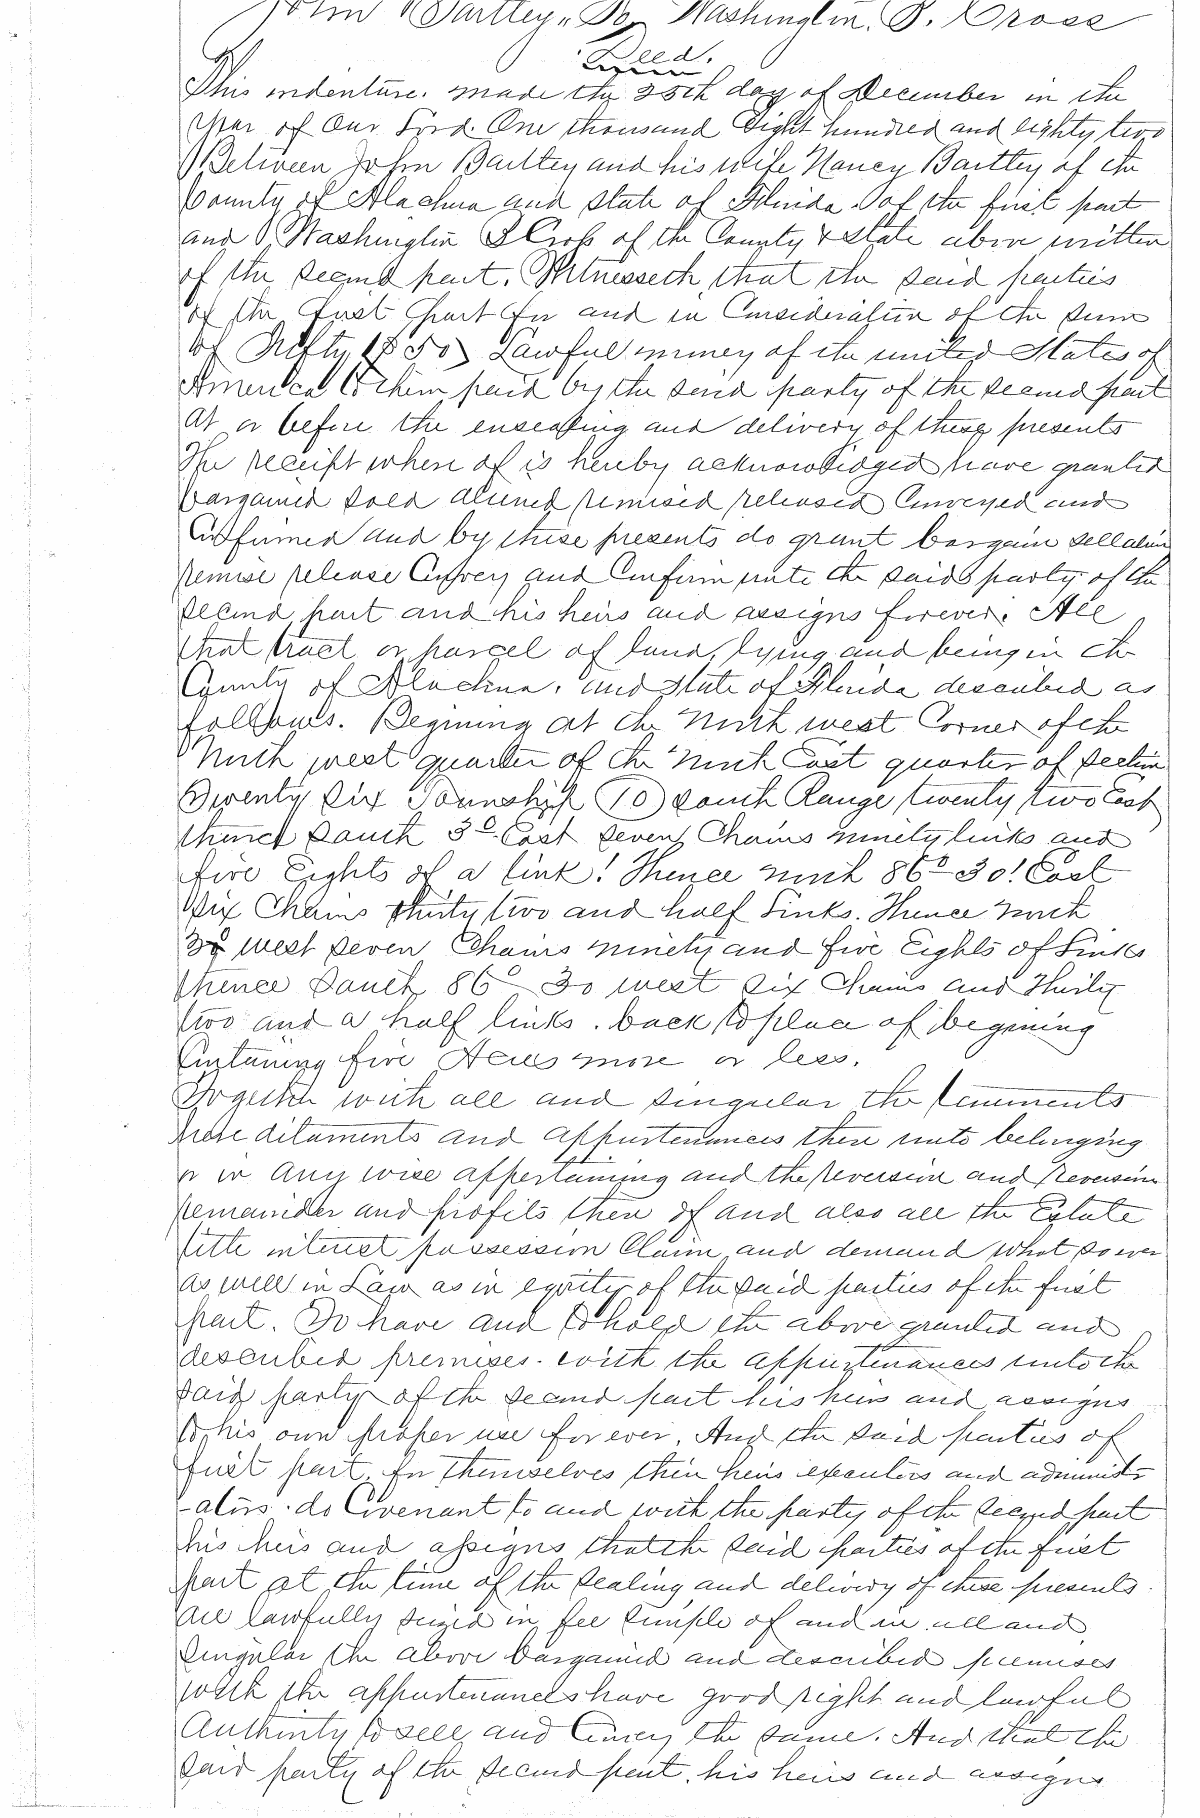 John Bartley, To Washington S. Cross
Deed.
This indenture. made the 25th day of December in the
Year of Our Lord. One thousand Eight hundred and eighty two
Between John Bartley and his wife Nancy Bartley of the
County of Alachua and State of Florida. of the first part
and Washington S Cross of the County & State above written
of the second part. Witnesseth, that the said parties
of the first part for and in Consideration of the sum
of Fifty ($50) Lawful money of the united States of
America to them paid by the said party of the second part
at or before the ensealing and delivery of these presents
The receipt where of is hereby acknowledged have granted
bargained sold aliened remised released Conveyed and
Confirmed and by these presents do grant bargain sell alien
remise release Convey and Confirm unto the said party of the
second part and his heirs and assigns forever. All
that tract or parcel of land, lying and being in the
County of Alachua. and State of Florida described as
follows. Begining at the North west Corner of the
North west quarter of the North East quarter of Section
Twenty Six Township (10) South Range twenty two East
thence South 3° East seven Chains ninety links and
five Eights of a link! Thence north 86° 30! East
Six Chains thirty two and half Links. Thence North
3° west seven Chains ninety and five Eights of Links
thence South 86° 30 west six Chains and Thirty
two and a half links. back to place of begining
Containing five Acres more or less.
Together with all and singular the tenements
hereditaments and appurtenances there unto belonging
or in any wise appertaining and the reversion and reversion
remainder and profits there of and also all the Estate
title interest possession Claim and demand what so ever
as well in Law as in equity of the said parties of the first
part. To have and to hold the above granted and
described premises. with the appurtenances unto the
said party of the second part his heirs and assigns
to his own proper use for ever. And the said parties of
first part, for themselves their heirs executors and administr
-ators. do Covenant to and with the party of the second part
his heirs and assigns that the said parties of the first
part at the time of the sealing and delivery of these presents.
are lawfully seized in fee simple of and in all and
singular the above bargained and described premises
with the appurtenances have good right and lawful
Authority to sell and Convey the same. And that the
said party of the second part. his heirs and assigns